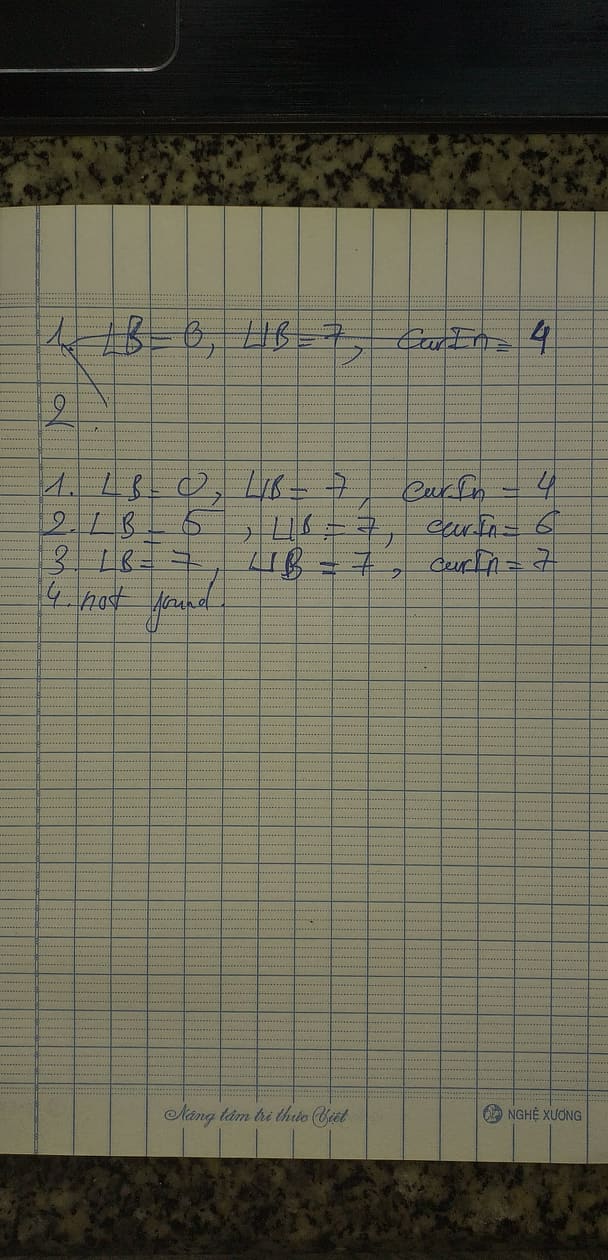 1. LB = 0, UB = 7, curIn = 4
2
1. LB = 0, UB = 7, curIn = 4
2. LB = 5, UB = 7, curIn = 6
3. LB = 7, UB = 7, curIn = 7
4. not found.
Nâng tầm tri thức Việt
NGHỆ XƯƠNG